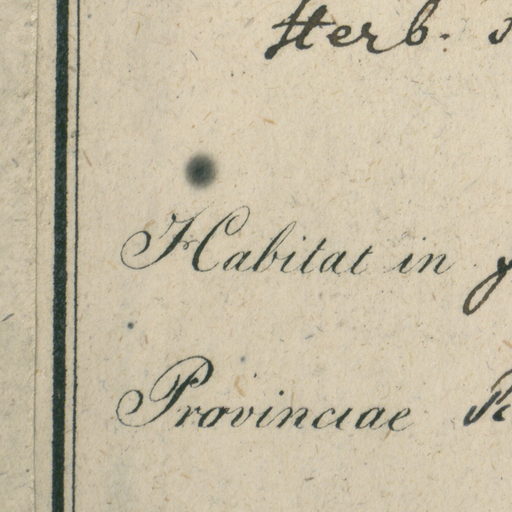 Herb.
Habitat in
Provinciae